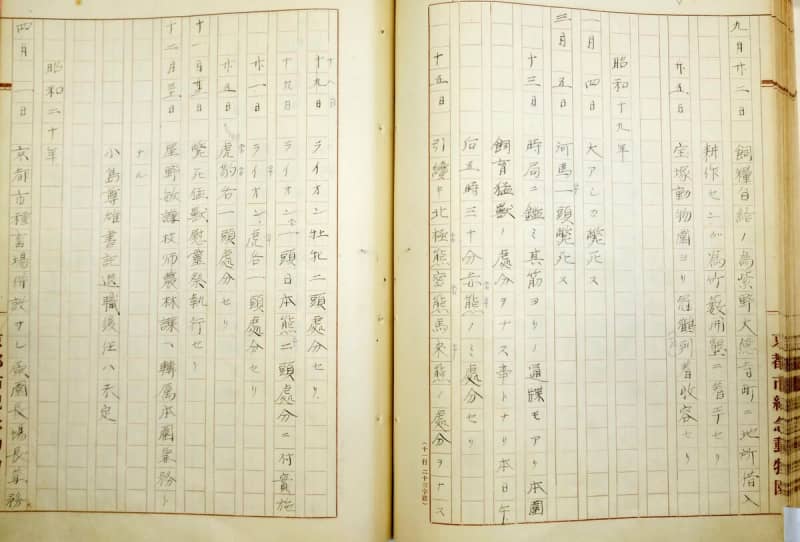 九月廿二日 飼糧自給ノ為紫野大徳寺町ニ地所借入
耕作センガ為竹藪開墾ニ着手セリ
廿五日 宝塚動物園ヨリ冠鶴到着收容セリ
昭和十九年
一月 四日 大アシカ斃死ス
三月 五日 河馬一頭斃死ス
十三日 時局ニ鑑ミ其筋ヨリノ通牒モアリ本園
飼育猛獣ノ處分ヲナス事トナリ本日午
后五時三十分 ノミ處分セリ
十五日 引續キ北極熊 熊馬来熊ノ處分ヲナス
(十一行二十三字詰)
京都市紀念動物園
十八日
十九日 ライオン牡牝二頭處分セリ
十九日 ライオン一頭日本熊二頭處分ニ付實施
廿一日 ライオン、虎各一頭處分セリ
廿五日 虎豹各一頭處分セリ
十一月廿 日 斃死猛獣慰霊祭執行セリ
十二月 日 星野 技師農林課ヘ轉属本園兼務ト
ナル
小島尊雄書記退職後任ハ未定
昭和二十年
四月 一日 京都市種畜場併設サレ 園長場長兼務
京都市紀念動物園